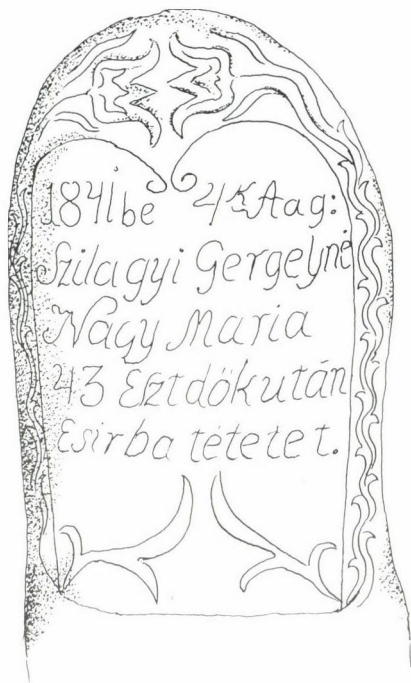 1841be 4k Aag:
Szilagyi Gergelyné
Nagy Maria
43 Esztdők után
Esirba tétetet.